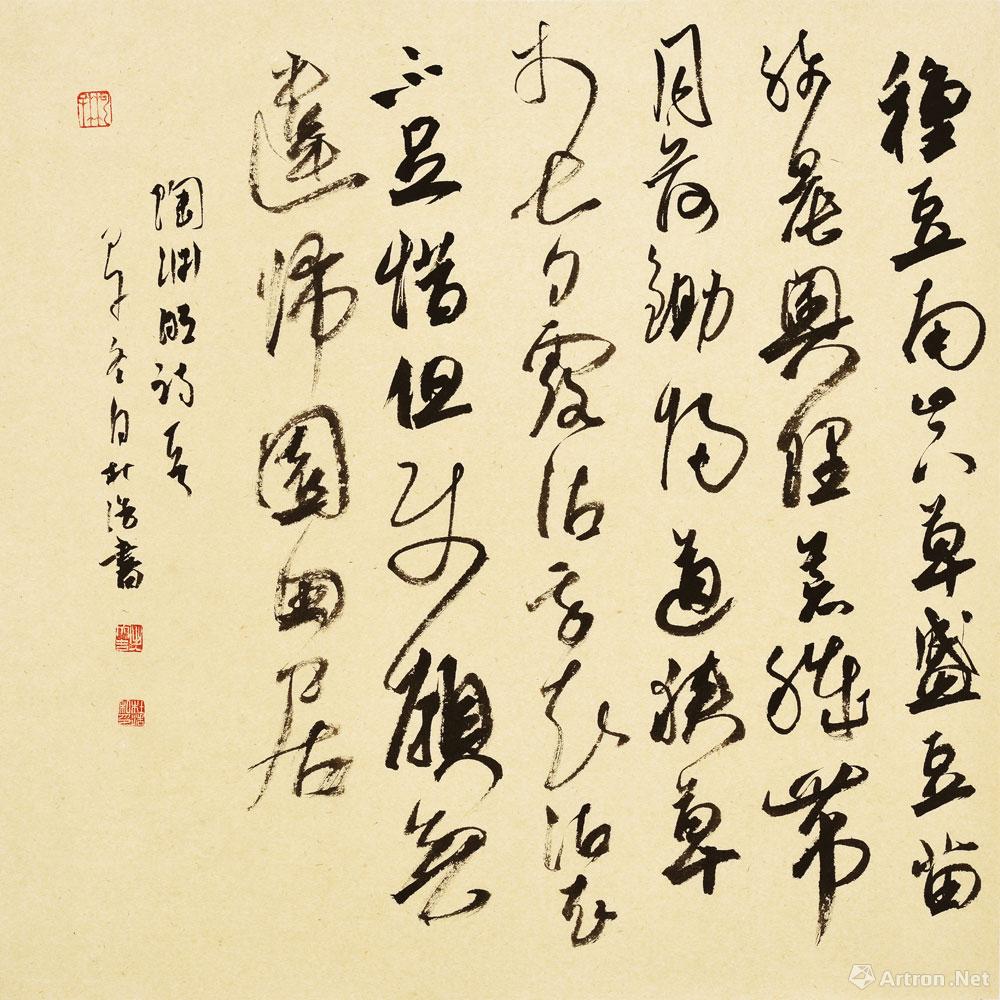 種豆南山下草盛豆苗
稀晨興理荒穢帶
月荷鋤歸道狹草
木長夕露沾我衣沾衣
不足惜但使願無
違歸園田居
陶淵明詩
冬月杜浩書
Artron.Net